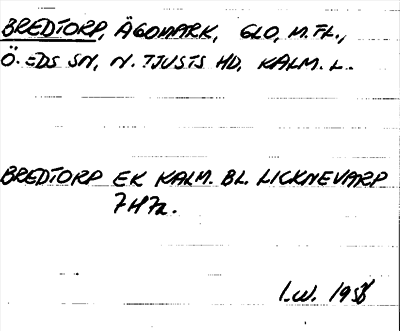 BREDTORP, ÄGOMARK, GLO, M. FL.,
Ö. EDS SN, N. TJUSTS HD, KALM. L.
BREDTORP EK KALM. BL. LICKNEVARP
7H7L.
I.W. 1958